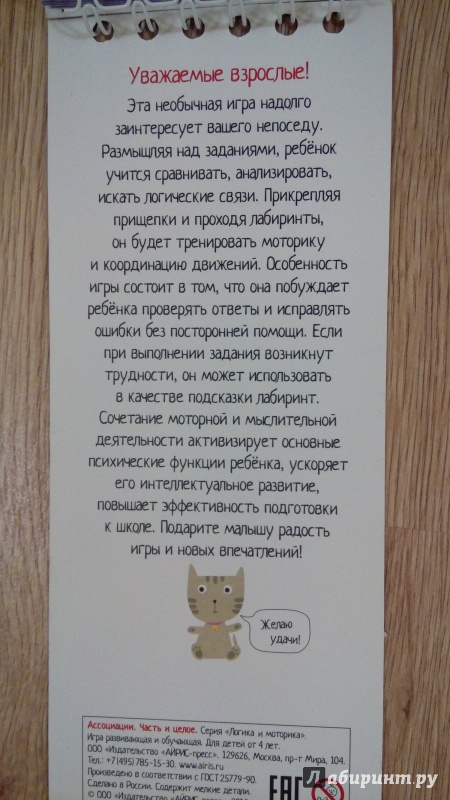 Уважаемые взрослые!
Эта необычная игра надолго
заинтересует вашего непоседу.
Размышляя над заданиями, ребёнок
учится сравнивать, анализировать,
искать логические связи. Прикрепляя
прищепки и проходя лабиринты,
он будет тренировать моторику
и координацию движений. Особенность
игры состоит в том, что она побуждает
ребёнка проверять ответы и исправлять
ошибки без посторонней помощи. Если
при выполнении задания возникнут
трудности, он может использовать
в качестве подсказки лабиринт.
Сочетание моторной и мыслительной
деятельности активизирует основные
психические функции ребёнка, ускоряет
его интеллектуальное развитие,
повышает эффективность подготовки
к школе. Подарите малышу радость
игры и новых впечатлений!
Желаю
удачи!
Ассоциации. Часть и целое. Серия «Логика и моторика».
Игра развивающая и обучающая. Для детей от 4 лет.
ООО «Издательство «АЙРИС-пресс». 129626, Москва, пр-т Мира, 104.
Тел.: +7(495)785-15-30. www.airis.ru
Произведено в соответствии с ГОСТ 25779-90.
Сделано в России. Содержит мелкие детали.
© ООО «Издательство «АЙРИС-пресс»
EAC
Лабиринт.ру